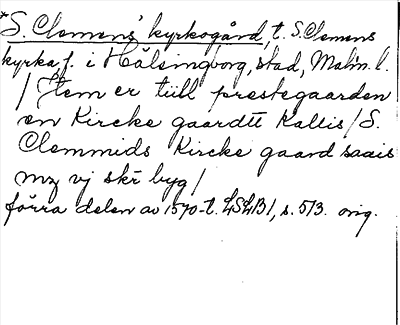 *S. Clemens' kyrkogård, t. S. Clemens
kyrka, f. i Hälsingborg, stad, Malm. l.
/ Item er tiill prestegaarden
en Kircke gaardtt Kallis / S.
Clemmids Kircke gaard saais
mz vj skr byg /
förra delen av 1570-t. LSLB1, s. 513. orig.